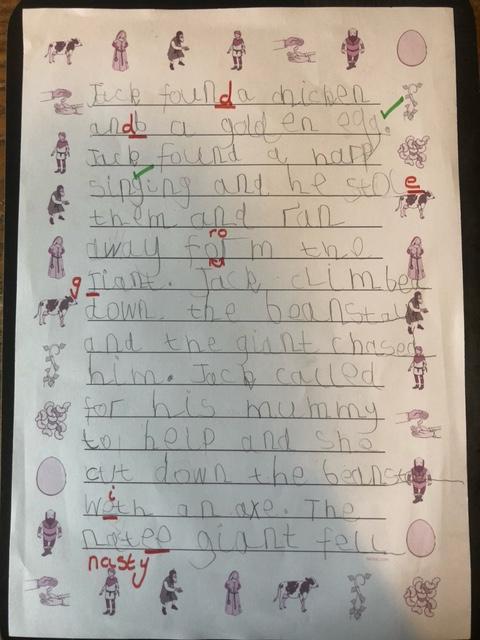 Jack found a chicken
andb a golden egg.
Jack found a harp
singing and he stole
them and ran
ro
away form the
g
iant. Jack climbed
down the beanstal
and the giant chased
him. Jack called
for his mummy
to help and she
cut down the beanst
i
weth an axe. The
giant fell
nasty